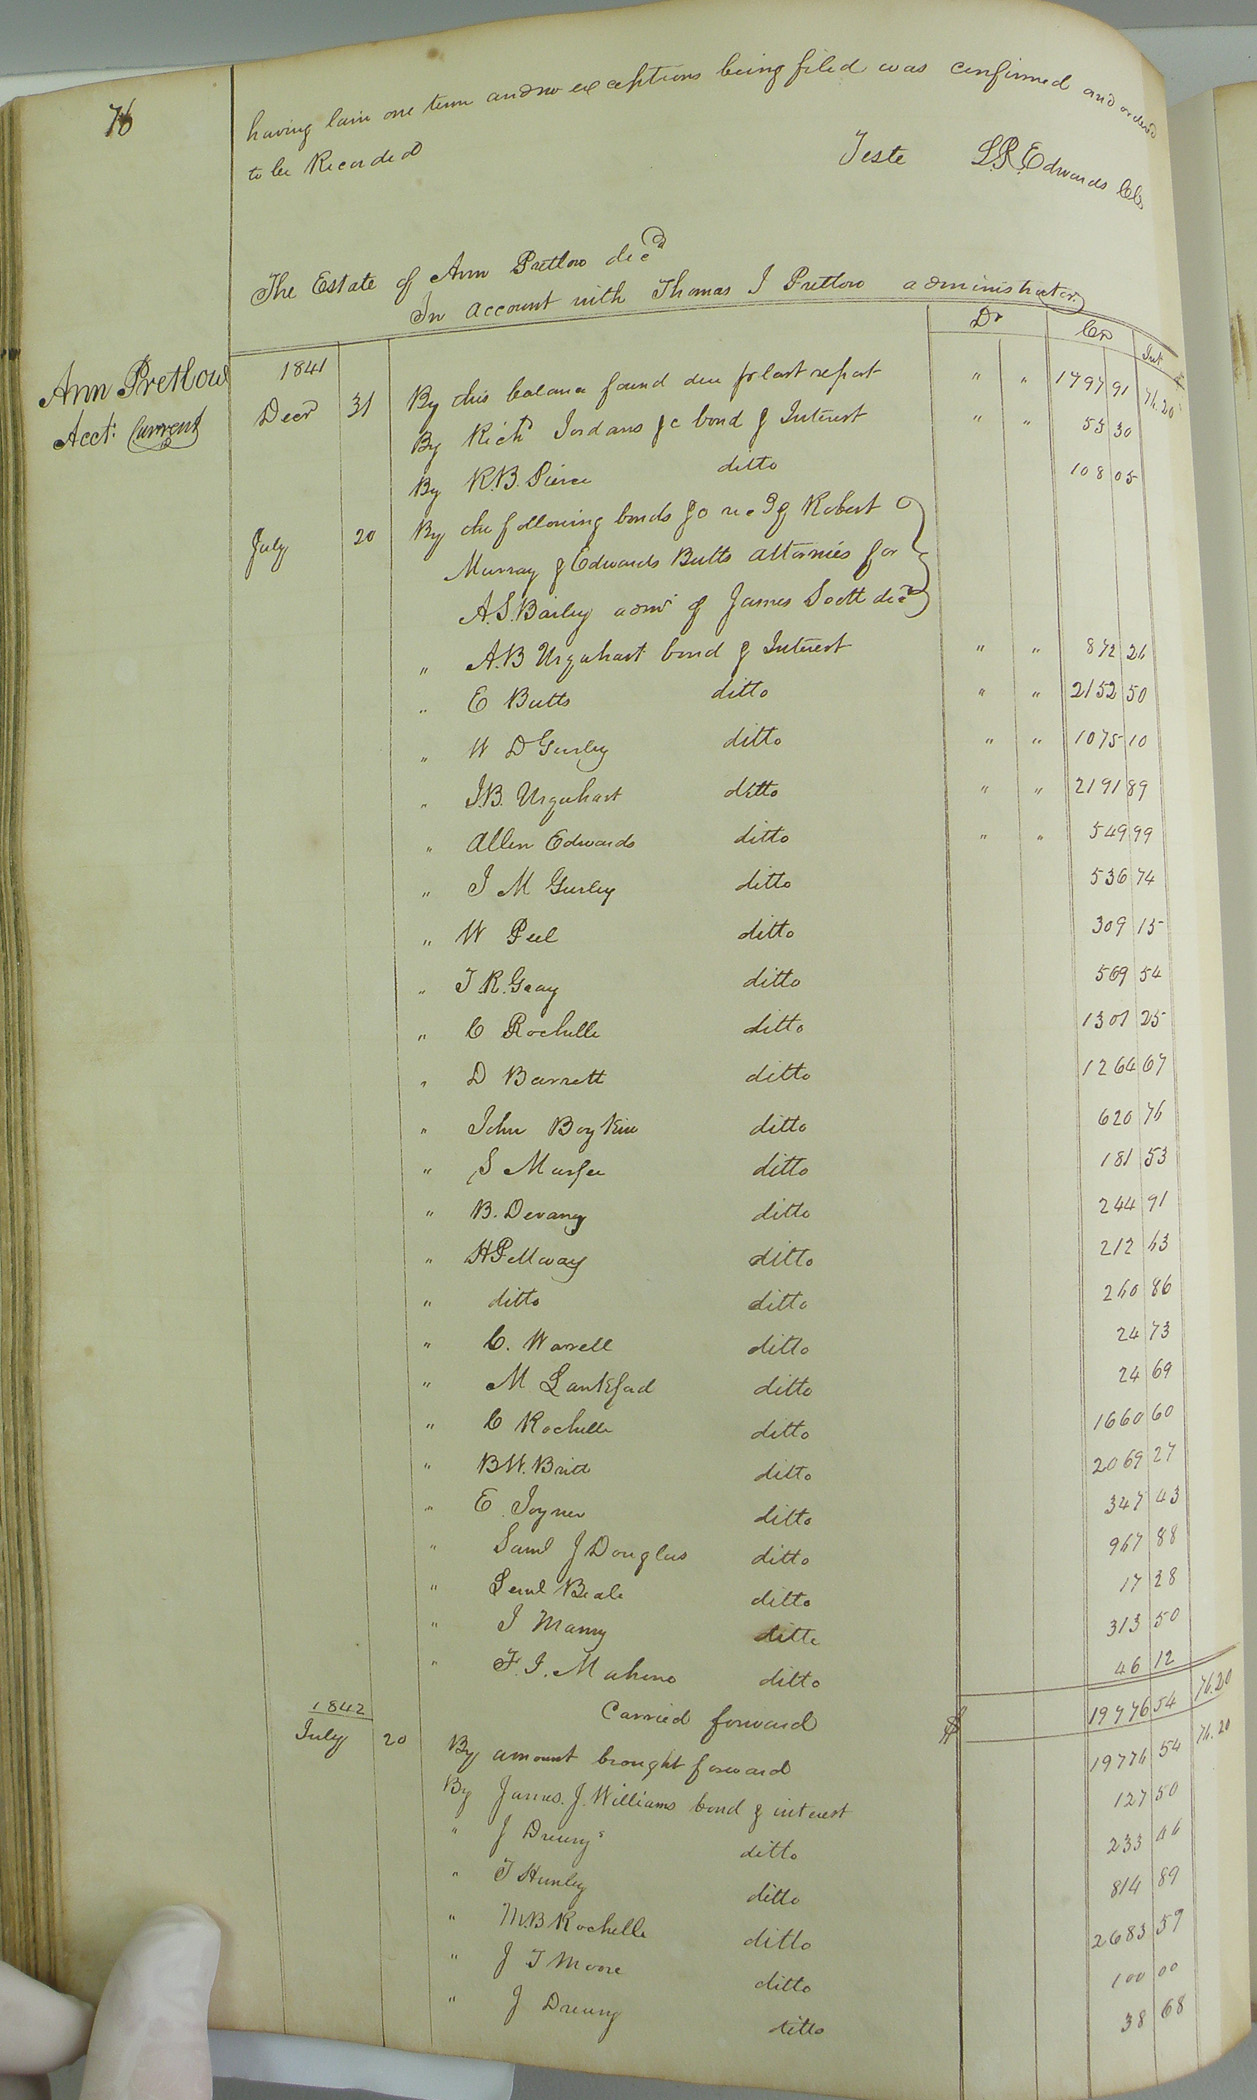 76
having lain one term and no exceptions being filed was confirmed and ordered
to be Recorded
Teste L.R. Edwards Clk
The Estate of Ann Pretlow decd
In account with Thomas J Pretlow administrator
Dr Cr Int
Ann Pretlow
Acct. Current
1841
Decr 31 By this balance found due pr last report " " 1797 91 76.20
By Richd Jordans &c bond & Interest " " 53 30
By R.B. Pierce ditto 108 05
July 20 By the following bonds &c recd of Robert
Murray & Edwards Butts attornies for
A.S. Barley admr of James Scott decd
" A.B Urquhart bond & Interest " " 872 26
" E Butts ditto " " 2152 50
" W D Gurley ditto " " 1075 10
" J.B. Urquhart ditto " " 2191 89
" Allen Edwards ditto " " 549 99
" J M Gurley ditto 536 74
" W Peel ditto 309 15
" T.R. Gray ditto 569 54
" C Rochelle ditto 1301 25
" D Barrett ditto 1264 67
" John Boykin ditto 620 76
" S Murfee ditto 181 53
" B. Devany ditto 244 91
" ditto 212 63
" ditto ditto 260 86
" C. Worrell ditto 24 73
" M Lankford ditto 24 69
" C Rochelle ditto 1660 60
" B.W. Britt ditto 2069 27
" E Joyner ditto 347 43
" Saml J Douglas ditto 967 88
" Leml Beale ditto 17 28
" J Manry ditto 313 50
" F.J. Mahone ditto 46 12
Carried forward $ 19776 54 76.20
1842
July 20 By amount brought forward 19776 54 76.20
By James. J. Williams bond & interest 127 50
" J Drewry's ditto 233 46
" T Hunley ditto 814 89
" M.B Rochelle ditto 2683 59
" J T Moore ditto 100 00
" J Drewry ditto 38 68